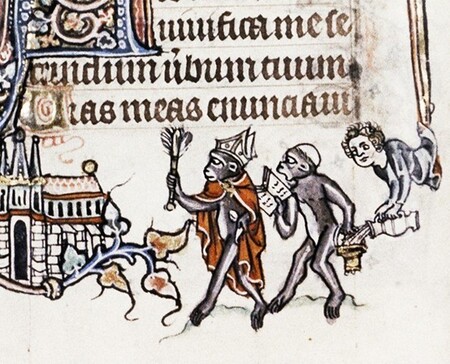 uiuifica me se
cundum ũbum tuum
Uias meas enunciaui